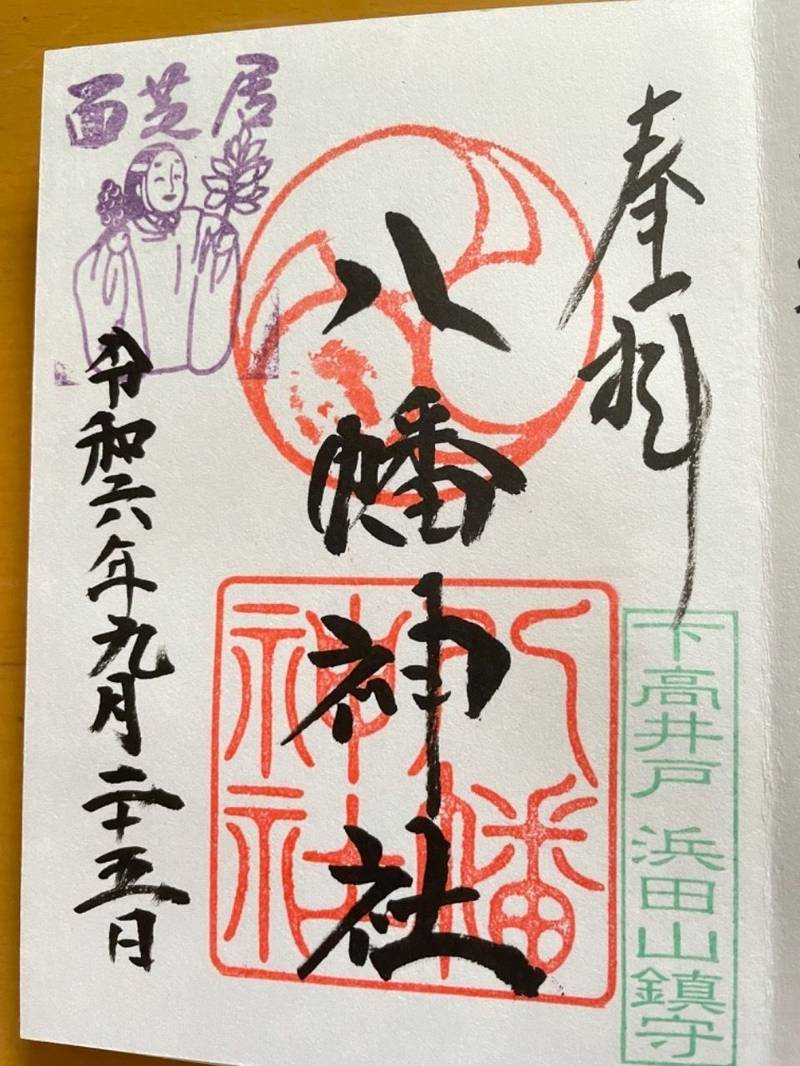 奉拝
下高井戸 浜田山鎮守
八幡神社
八幡神社
面芝居
令和六年九月二十五日